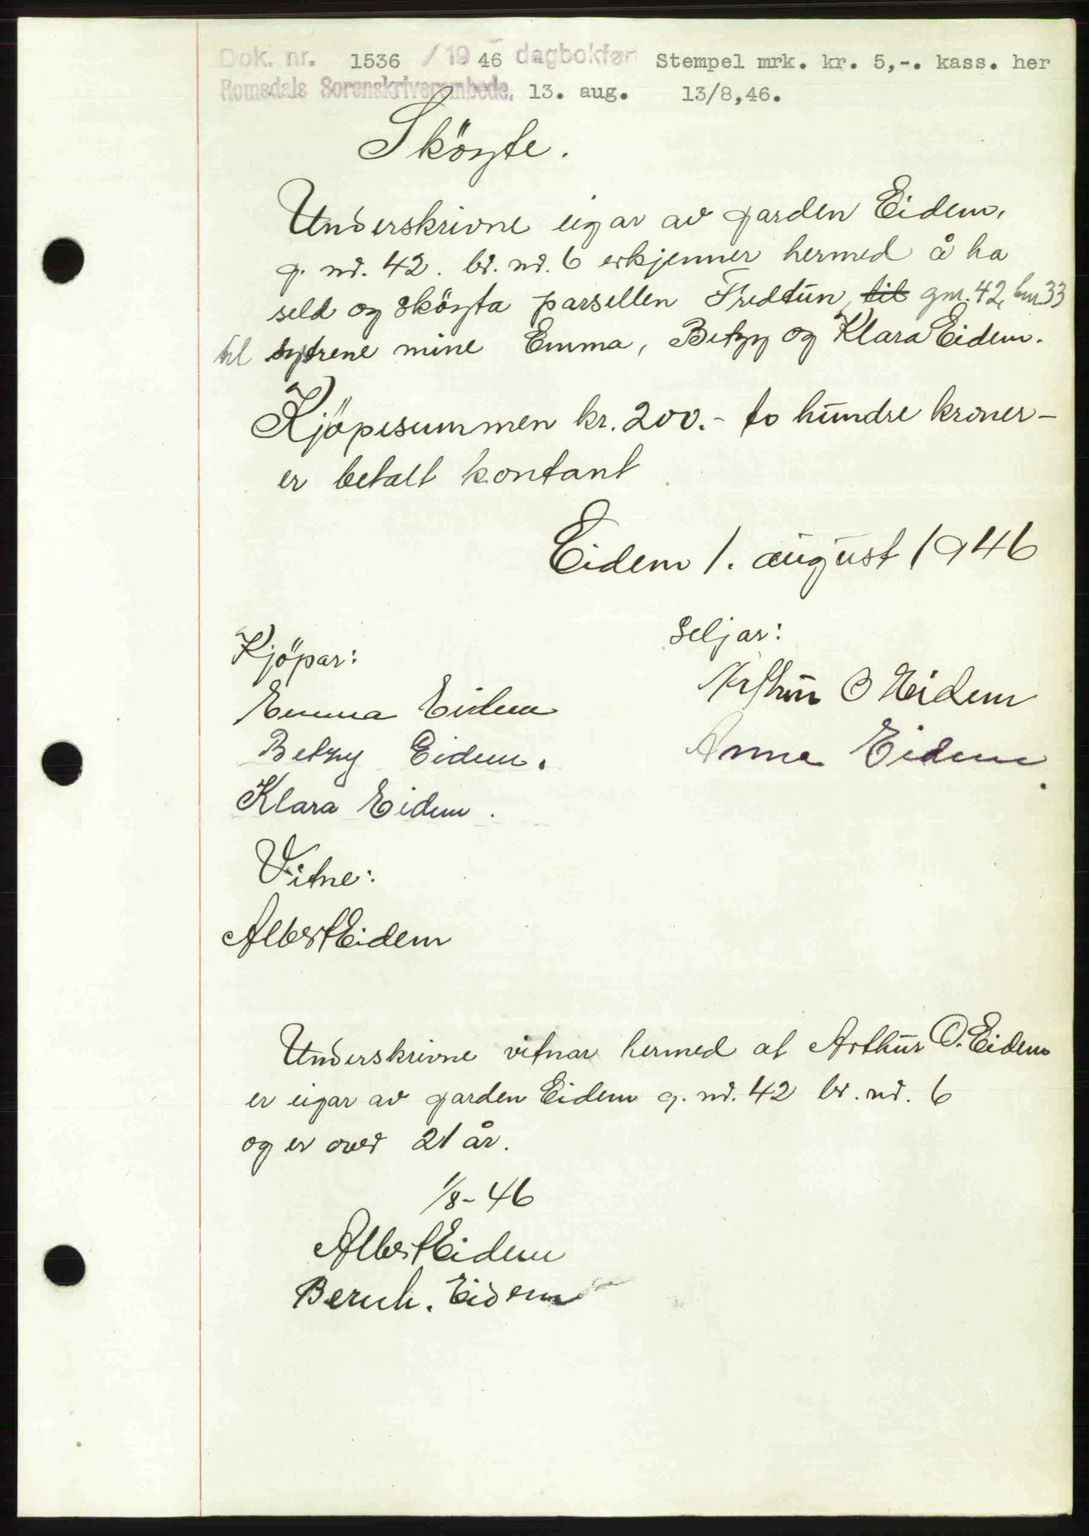 Dok. nr. 1536 / 19 46 dagbokført Stempel mrk. kr. 5,-. kass. her
Romsdals Sorenskriverembede, 13. aug. 13/8,46.
Sköyte.
Underskrivne eigar av garden Eidem,
g. nr. 42. br. nr. 6 erkjenner hermed å ha
seld og sköyta parsellen Fredtun, ~~til~~ gnr. 42, bnr. 33
til systrene mine Emma, Betzy og Klara Eidem.
Kjöpesummen kr. 200.- to hundre kroner-
er betalt kontant
Eidem 1. august 1946
Kjöpar:
Emma Eidem
Betzy Eidem.
Klara Eidem.
Seljar:
Arthur O Eidem
Anna Eidem.
Vitne:
Albert Eidem
Underskrivne vitnar hermed at Arthur O. Eidem
er eigar av garden Eidem g. nr. 42 br. nr. 6
og er over 21 år.
1/8-46
Albert Eidem
Bernh. Eidem